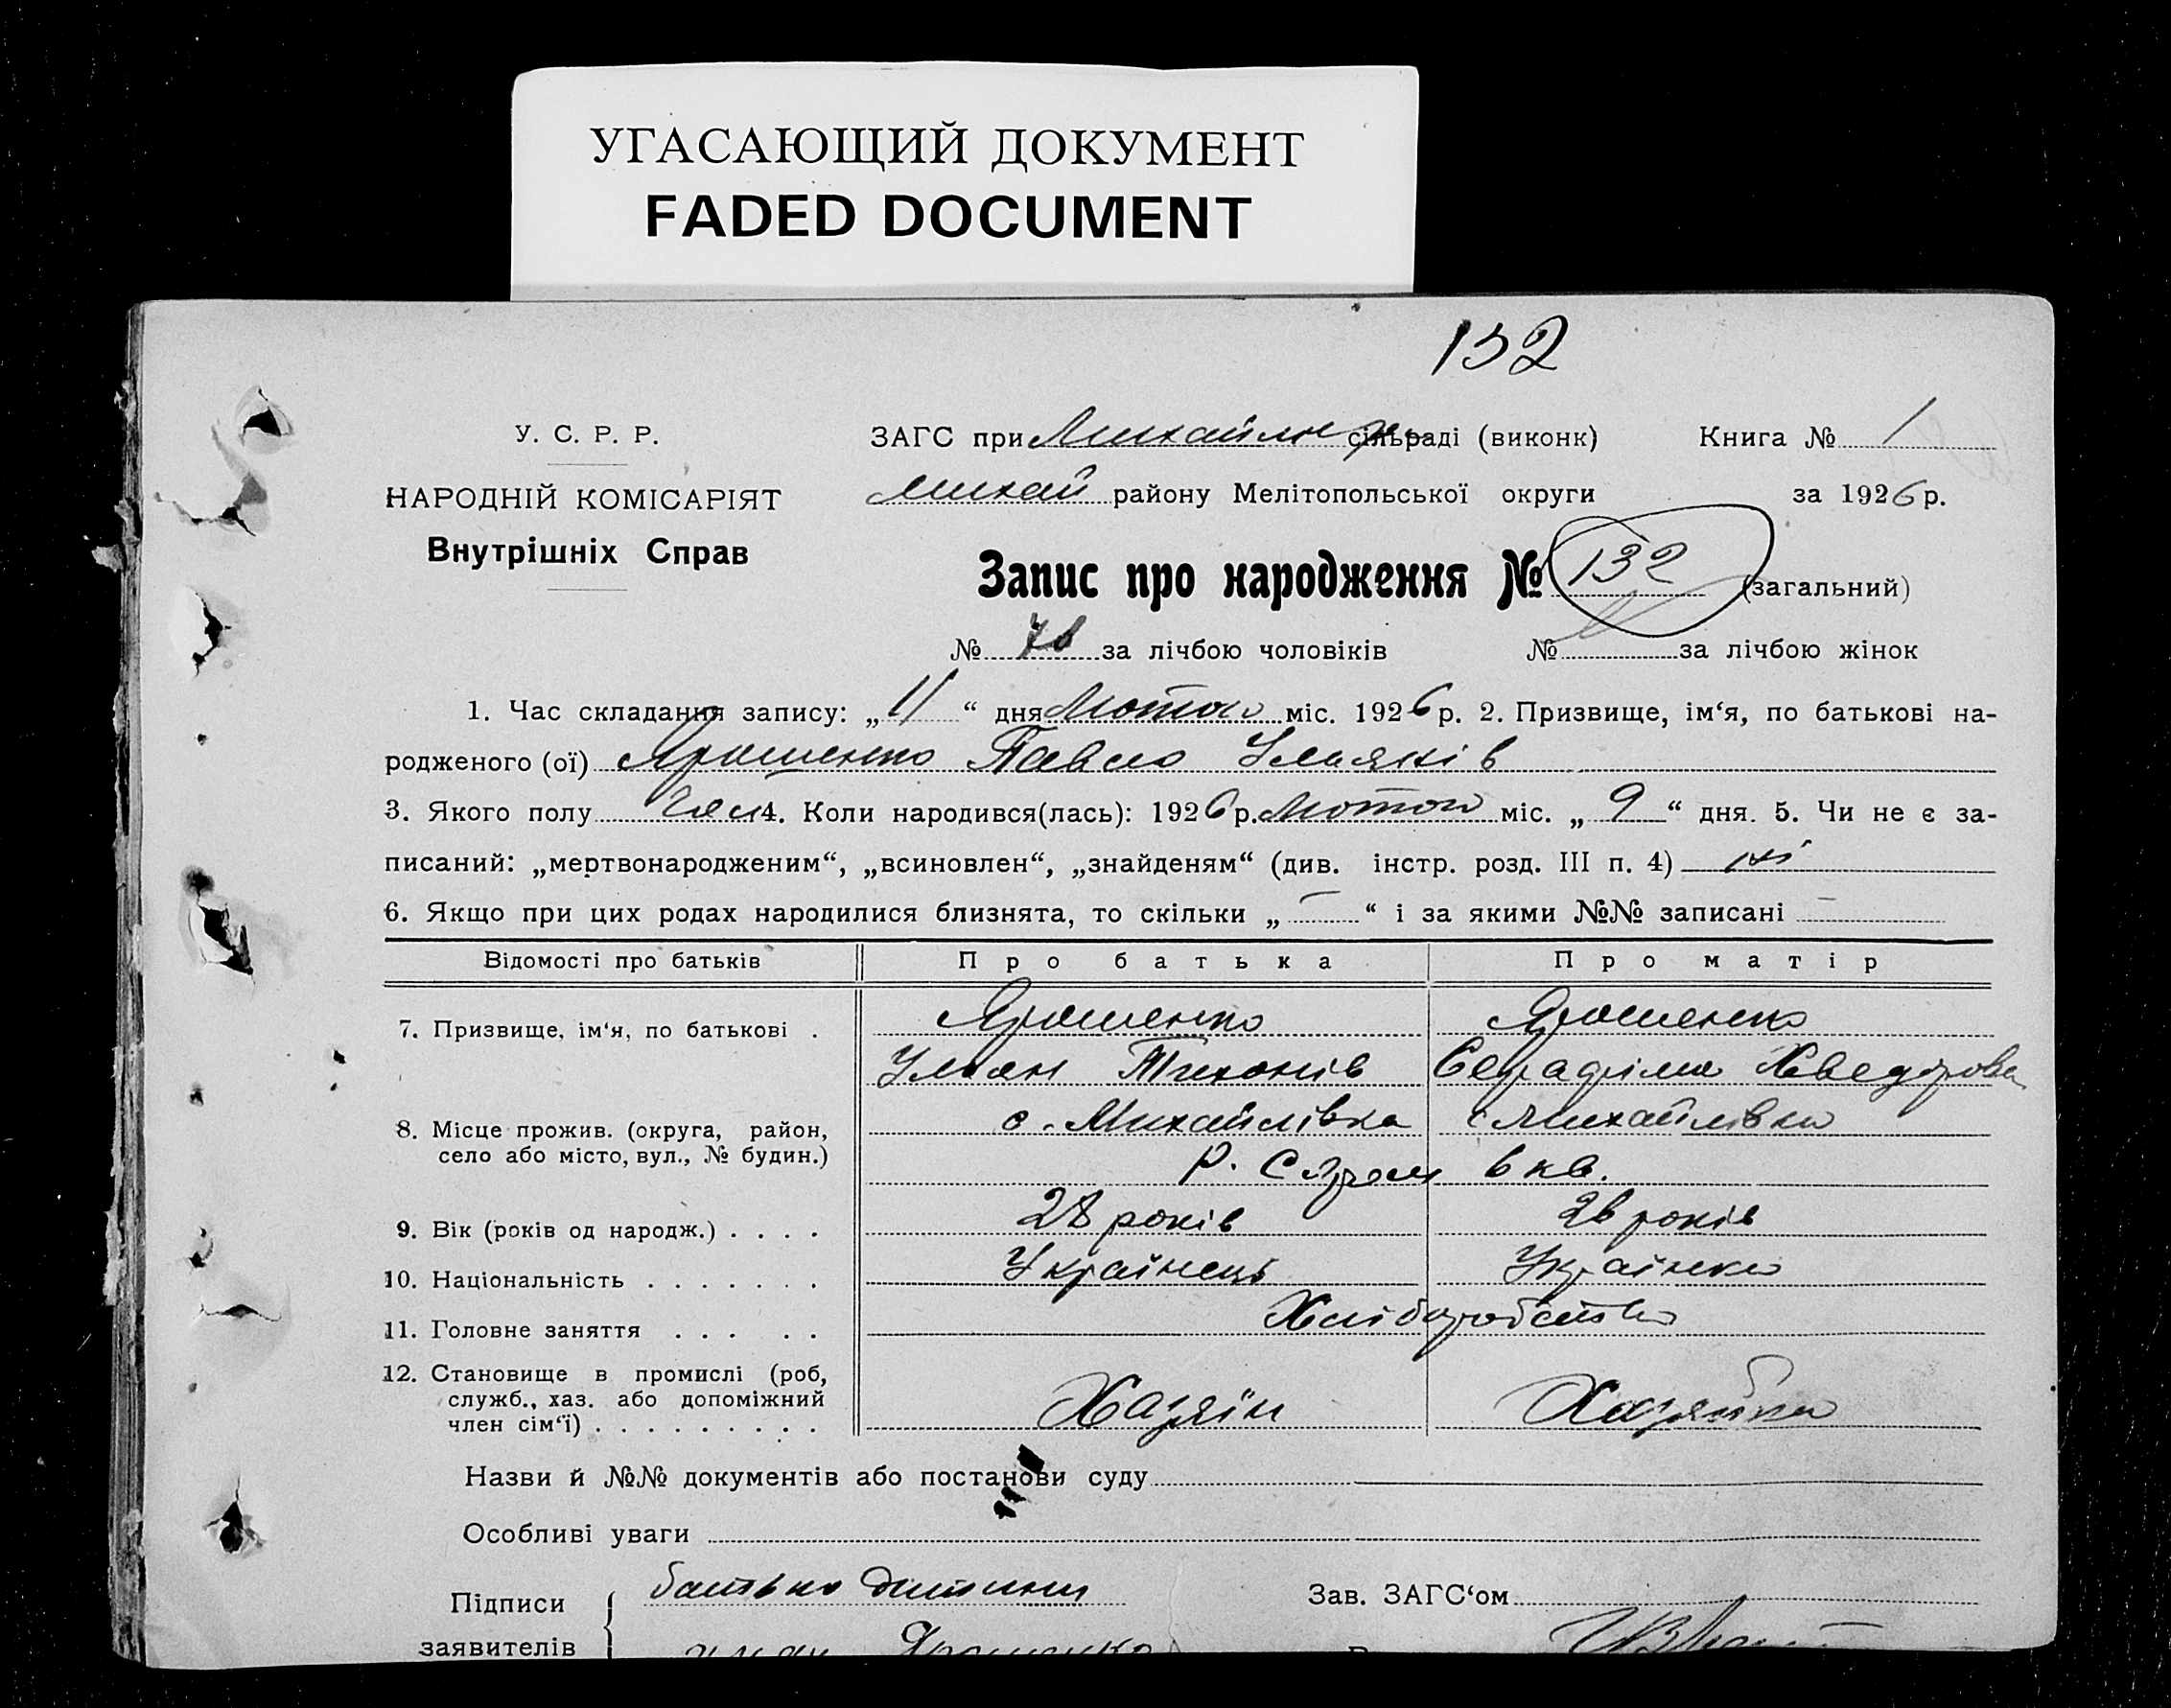 УГАСАЮЩИЙ ДОКУМЕНТ
FADED DOCUMENT
132
У. С. Р. Р.
НАРОДНІЙ КОМІСАРІЯТ
Внутрішніх Справ
ЗАГС при сільраді (виконк) Книга № 1
Михай району Мелітопольської округи за 1926 р.
Запис про народження № 132 (загальний)
№ за лічбою чоловіків № за лічбою жінок
1. Час складання запису: „11“ дня Лютого міс. 1926 р. 2. Призвище, ім‘я, по батькові на-
родженого (ої) Ярошенко Павло Ульянів
3. Якого полу Чол 4. Коли народився(лась): 1926 р. Лютого міс. „9“ дня. 5. Чи не є за-
писаний: „мертвонародженим“, „всиновлен“, „знайденям“ (див. інстр. розд. III п. 4) ні
6. Якщо при цих родах народилися близнята, то скільки „—“ і за якими №№ записані —
Відомості про батьків Про батька Про матір
7. Призвище, ім‘я, по батькові . Ярошенко Ярошенко
Ульян Тихонів Серафіма Хведорова
8. Місце прожив. (округа, район, с. Михайлівка с Михайлівка
село або місто, вул., № будин.) 6 кв.
9. Вік (років од народж.) . . . . 28 років 26 років
10. Національність . . . . . . . Українець Українка
11. Головне заняття . . . . . Хліборобство
12. Становище в промислі (роб,
служб., хаз. або допоміжний
член сім‘ї) . . . . . . . . . Хазяїн Хазяйка
Назви й №№ документів або постанови суду
Особливі уваги
Підписи батько дитини Зав. ЗАГС‘ом
заявителів Ульян Ярошенко